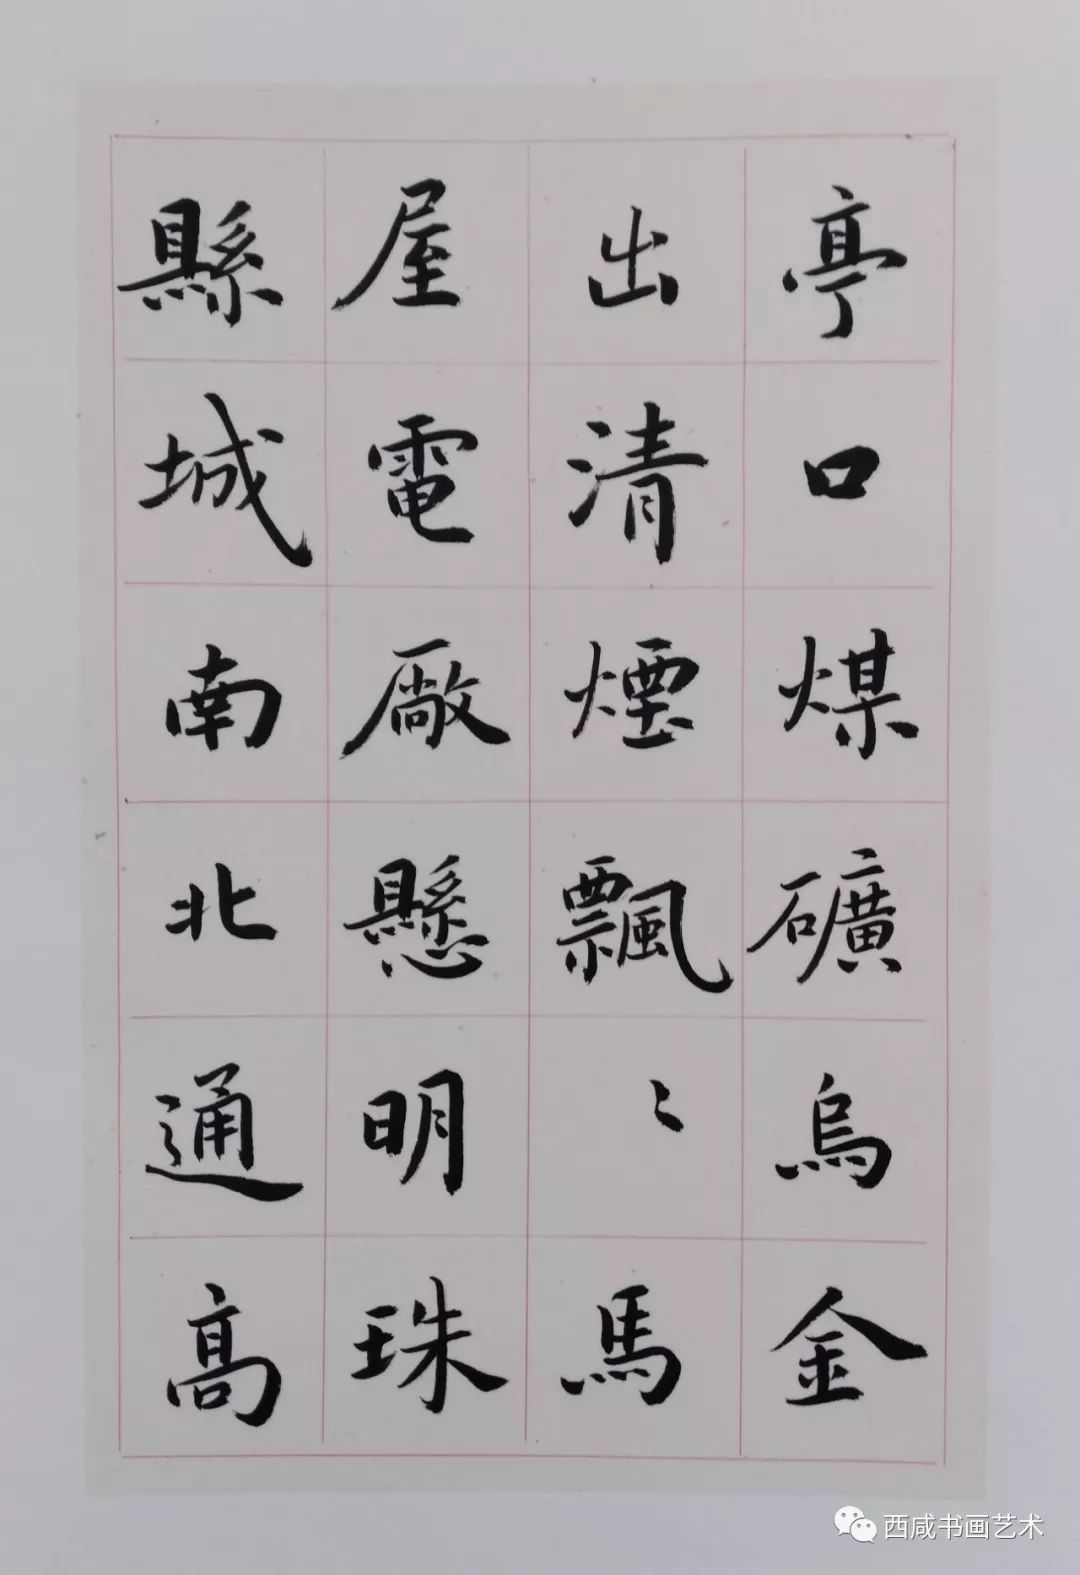 亭口煤礦烏金
出清煙飄〻馬
屋電廠懸明珠
縣城南北通高
西咸书画艺术